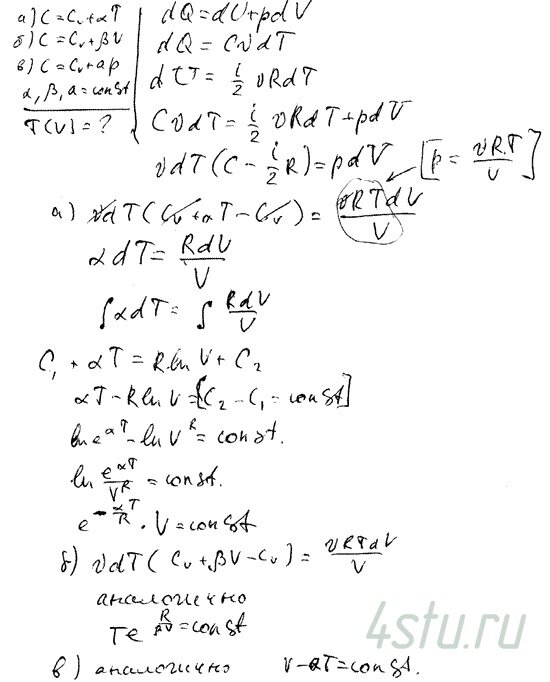 а) C = Cv + αT
б) C = Cv + βV
в) C = Cv + ap
α, β, a = const
T(V) = ?
dQ = dU + pdV
dQ = CνdT
dU = i/2 νRdT
CνdT = i/2 νRdT + pdV
νdT(C - i/2 R) = pdV [p = νRT/V]
а) νdT(Cv + αT - Cv) = νRTdV/V
αdT = RdV/V
∫αdT = ∫RdV/V
C₁ + αT = R ln V + C₂
αT - R ln V = [C₂ - C₁ = const]
ln e^(αT) - ln V^R = const.
ln e^(αT)/V^R = const.
e^(-αT/R) · V = const
б) νdT(Cv + βV - Cv) = νRTdV/V
аналогично
Te^(R/βV) = const
в) аналогично V - aT = const.
4stu.ru